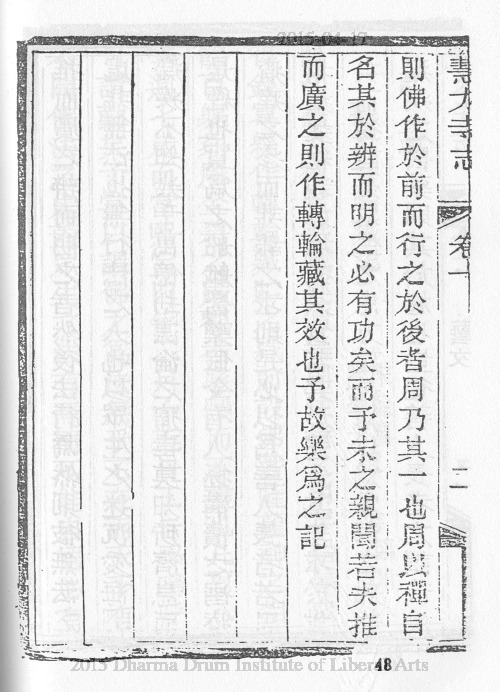 2015-04-17
慧力寺志
卷十
二
則佛作於前而行之於後者周乃其一也周以禪自
名其於辨而明之必有功矣而予未之親聞若夫推
而廣之則作轉輪藏其效也予故樂爲之記
48
2015 Dharma Drum Institute of Liberal Arts